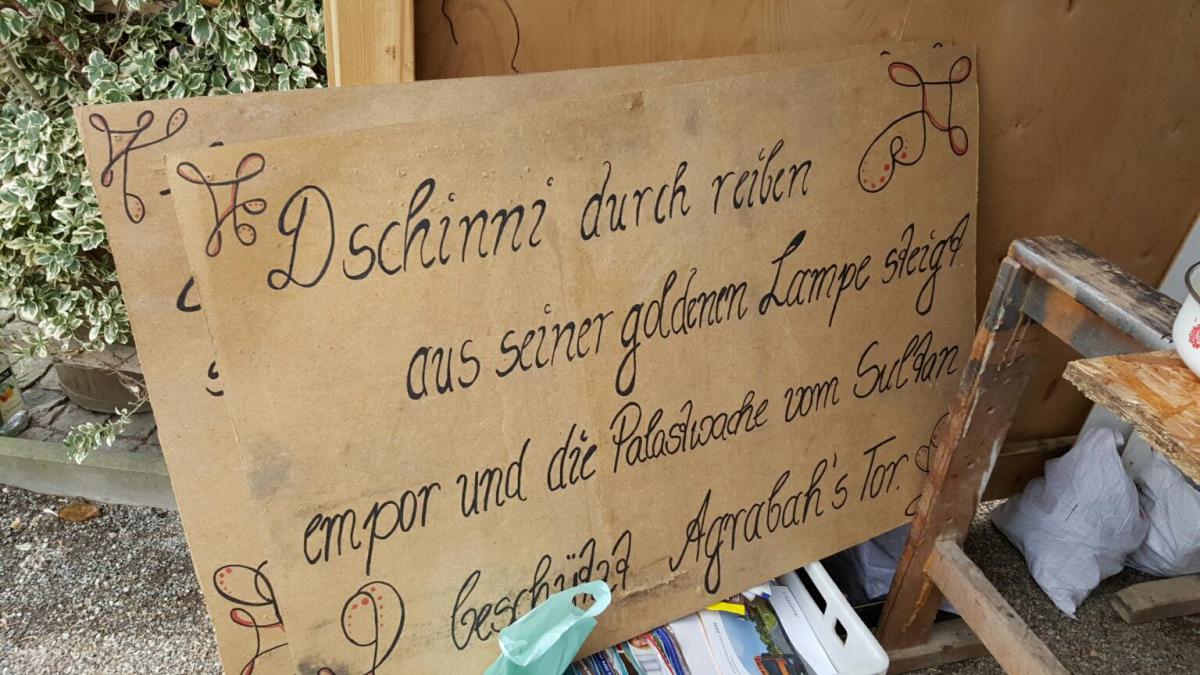 Dschinni durch reiben
aus seiner goldenen Lampe steigt
empor und die Palastwache vom Sultan
beschützt Agrabah's Tor.